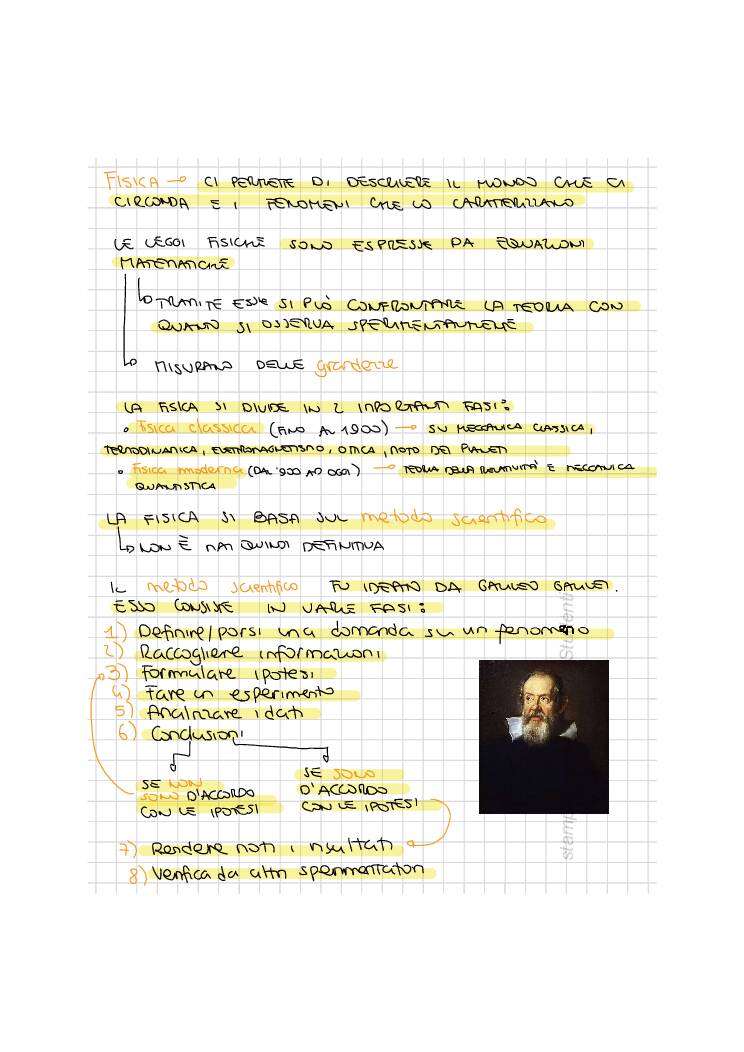 FISICA → CI PERMETTE DI DESCRIVERE IL MONDO CHE CI
CIRCONDA E I FENOMENI CHE LO CARATTERIZZANO
LE LEGGI FISICHE SONO ESPRESSE DA EQUAZIONI
MATEMATICHE
TRAMITE ESSE SI PUÒ CONFRONTARE LA TEORIA CON
QUANTO SI OSSERVA SPERIMENTALMENTE
MISURANO DELLE grandezze
LA FISICA SI DIVIDE IN 2 IMPORTANTI FASI:
• Fisica classica (FINO AL 1900) → SU MECCANICA CLASSICA,
TERMODINAMICA, ELETTROMAGNETISMO, OTTICA, MOTO DEI PIANETI
• Fisica moderna (DAL '900 AD OGGI) → TEORIA DELLA RELATIVITA' E MECCANICA
QUANTISTICA
LA FISICA SI BASA SUL metodo scientifico
NON È MAI QUINDI DEFINITIVA
IL metodo scientifico FU IDEATO DA GALILEO GALILEI.
ESSO CONSISTE IN VARIE FASI:
1) Definire/porsi una domanda su un fenomeno
2) Raccogliere informazioni
3) Formulare ipotesi
4) Fare un esperimento
5) Analizzare i dati
6) Conclusioni
SE NON
SONO D'ACCORDO
CON LE IPOTESI
SE SONO
D'ACCORDO
CON LE IPOTESI
7) Rendere noti i risultati
8) Verifica da altri sperimentatori